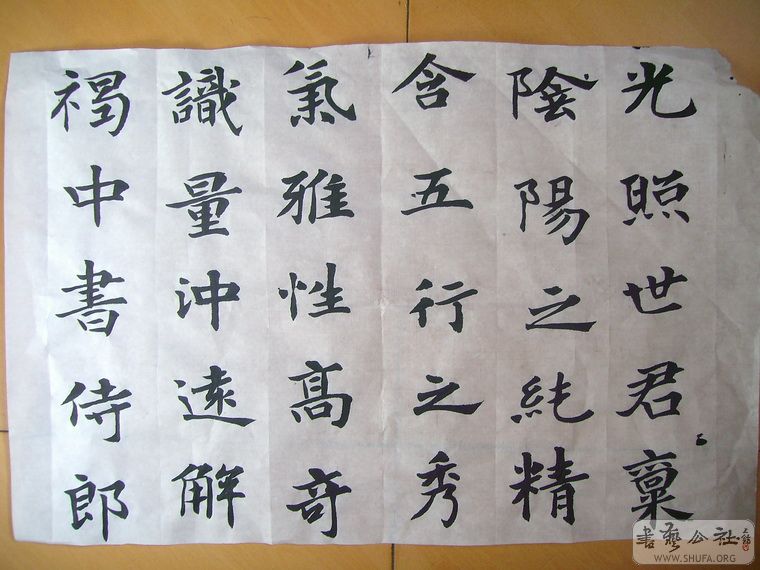 光照世君稟
陰陽之純精
含五行之秀
氣雅性高奇
識量沖遠解
褐中書侍郎
書藝公社
WWW.SHUFA.ORG